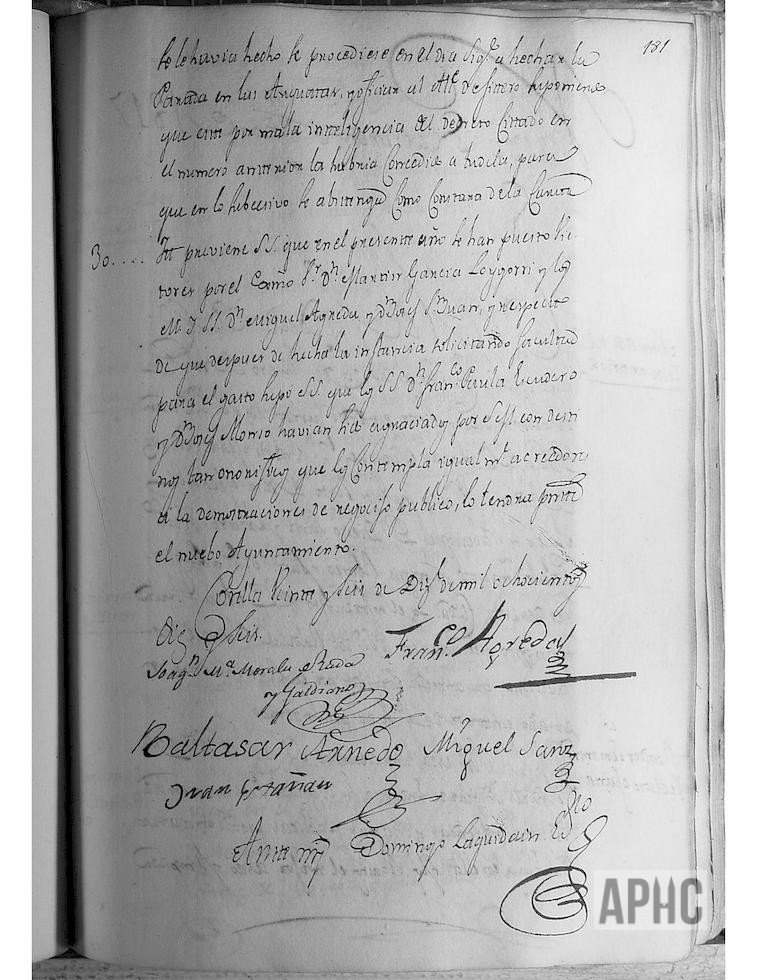 181
se le havia hecho se procediese en el dia Sigte. a hechar la
Parada en las Anguatas, y oficiar al Alce. de fitero suponiendo
que este por mala inteligencia del decreto Cittado en
el numero antterior la habria Concedido a tudela, para
que en lo subcesivo se abstenga Como Constara de la Cartta
30.... Ytt previene S.S. que en el presentte año se han puesto Vic
tores por el Camo. Sr. Dn. Martin Garcia Loygorri y los
M. I. SS. Dn. Miguel Agreda y Dn. Josef Sn. Juan, y respecto
de que despues de hecha la instancia solicitando facultad
para el gasto supo S.S. que los SS Dn. franco. Escudero
y Dn. Josef Monso havian sido agraciados por S.M. con desti
nos tan onorificos que los Contempla igualmte. acreedores
a la demostraciones de regocijo publico, lo tendra prestte
el nuebo Ayuntamiento.
Corella Veinte y seis de Dize. de mil ochocientos
Diez y seis.
Franco. Agreda
Joaqn. Ma. Morales y Rada
y Galdiano
Baltasar Arnedo Miguel Sanz
Juan
Antte mi Domingo Laquidain Essno
APHC